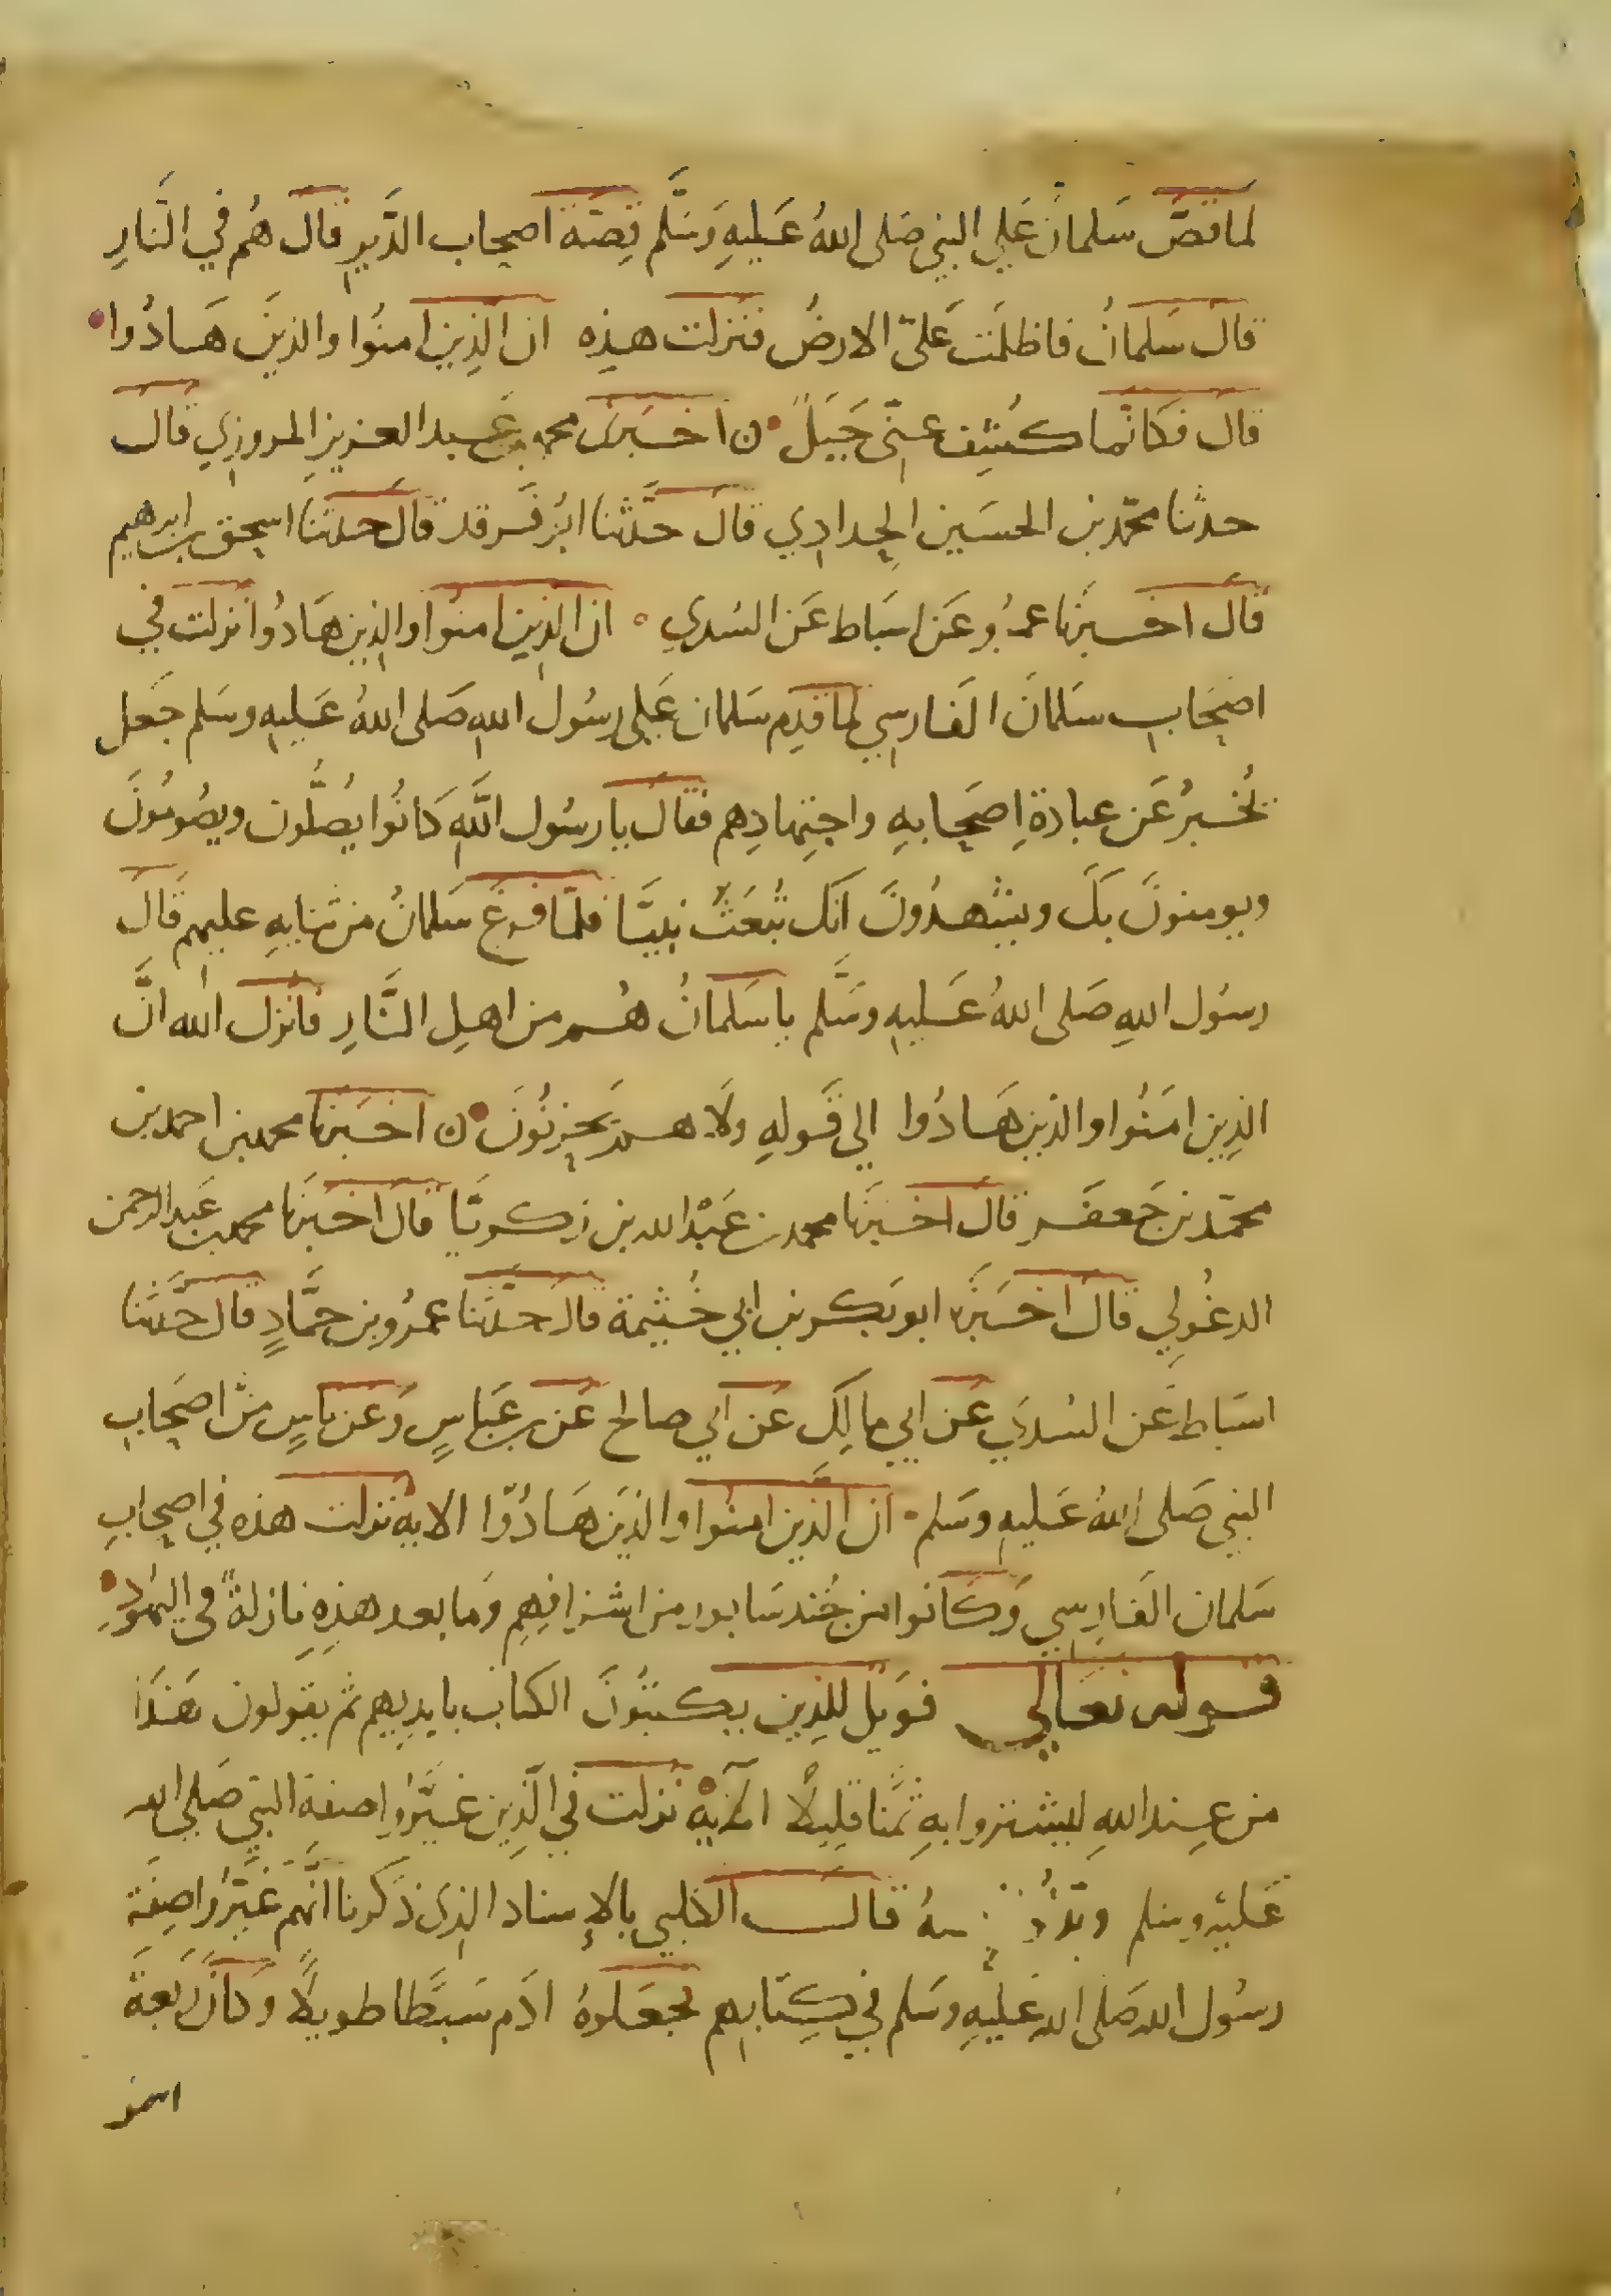 لما قصّ سَلمانُ عَلي النبي صَلى اللهُ عَليهِ وَسَلَّم قِصّة اصحاب الدَّيرِ قالَ هُم في النَّارِ
قال سَلمانُ فاظلمَت عَليّ الارضُ فنزلت هذِه ان الذِين امنُوا والذينَ هَادُوا
قال فكانّما كُشِف عنّي جَبَلٌ ن اخبَرنَا محمد بن عَبد العزيزِ المروزي قالَ
حدثنا محمّد بن الحسَين الحِدادِي قال حَدَّثنا ابُو فَرقد قال حدثنا اسحق بن ابرهيم
قال اخبرَنا عمرُو عَن اسبَاط عَن السُدي ان الذِين امنوا والذِين هَادُوا نزلت في
اصحَابِ سَلمانَ الفَارسِي لما قدِم سَلمان عَلى رسُول اللهِ صَلى اللهُ عَليهِ وسَلم جَعَل
يُخبرُ عَن عِبادَةِ اصحَابهِ واجتِهادِهم فقال يا رسُول اللَّهِ كَانُوا يُصَلُّون ويصُومُونَ
ويومنونَ بكَ ويشهدُونَ انّكَ تُبعَثُ نبيًّا فلمّا فرغَ سَلمانُ من ثنايهِ عليهم قالَ
رسُول اللهِ صَلى اللهُ عَليهِ وسَلَّم يا سَلمانُ هُم من اهلِ النَّارِ فانزلَ الله انَّ
الذِين امَنُوا والذين هَادُوا الي قَولهِ ولَا هم يَحزنُونَ ن اخبَرنا محمد بن احمد بن
محمّد بن جَعفَر قال اخبرَنا محمد بن عَبْد الله بن زكريَّا قال اخبَرنا محمد بن عَبد الرحمن
الدغُولِي قال اخبَرنَا ابو بَكر بن ابي خُثيمة قال حَدَّثنا عمرُو بن حَمَّادٍ قال حَدَّثنا
اسبَاط عَن السُدي عَن ابي مالِك عَن ابي صالح عَن بن عَبَّاسٍ وَعَن ناسٍ منْ اصحَابِ
النبي صَلى اللهُ عَليهِ وسَلم ان الَّذين امنوا والذينَ هَادُوا الايه نزلت هذه في اصحابِ
سَلمان الفَارِسي وَكَانوا من جُند سَابور من اشرافِهِم ومَا بعد هذِهِ نازلةٌ في اليَهُودِ
قوله تعَالي فوَيل للذِين يكتبُونَ الكتاب بايدِيهم ثم يقولون هَذَا
من عِند اللهِ ليشتروا بهِ ثمَنًا قلِيلًا الآيه نزلت في الَّذِين غيَّرُوا صفة النبيّ صَلي الله
عَليْهِ وسلم قالَ الكلبي بالاِسناد الذِي ذكرنا انَّهم غيَّرُوا صِفَة
رسُول الله صَلى الله عَليْهِ وسَلم في كِتَابهم فجعَلوهُ ادَم سَبطًا طويلًا وكان رَبعَةً
اسمر